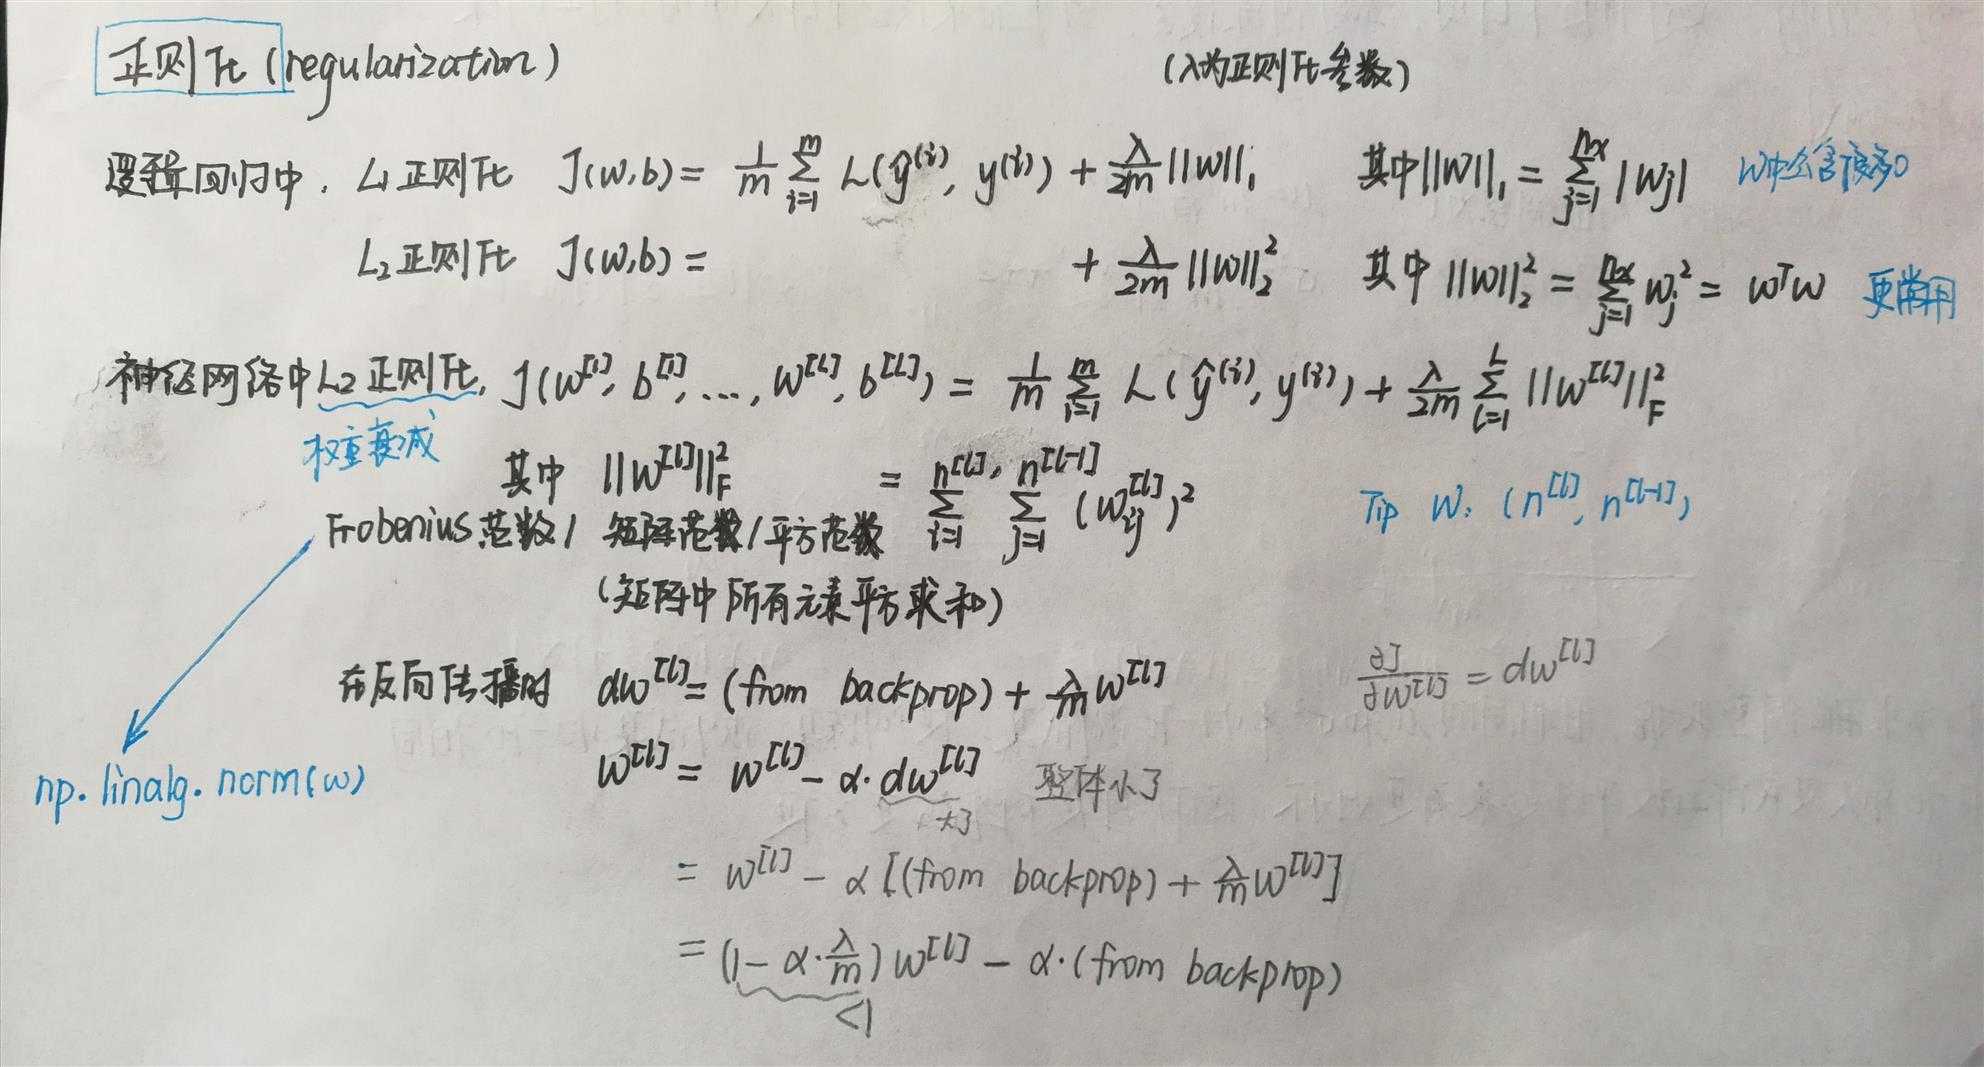 正则化 (regularization) (λ为正则化参数)
逻辑回归中. L₁正则化 J(w,b) = 1/m ∑_{i=1}^{m} L(ŷ⁽ⁱ⁾, y⁽ⁱ⁾) + λ/2m ||w||₁ 其中||w||₁ = ∑_{j=1}^{nx} |wj| w中会含很多0
L₂正则化 J(w,b) = + λ/2m ||w||₂² 其中 ||w||₂² = ∑_{j=1}^{nx} wj² = wᵀw 更常用
神经网络中L₂正则化, J(w^[1], b^[1], ..., w^[L], b^[L]) = 1/m ∑_{i=1}^{m} L(ŷ⁽ⁱ⁾, y⁽ⁱ⁾) + λ/2m ∑_{l=1}^{L} ||w^[l]||_F²
权重衰减
其中 ||w^[l]||_F² = ∑_{i=1}^{n^[l]} ∑_{j=1}^{n^[l-1]} (w_ij^[l])² Tip w: (n^[l], n^[l-1])
Frobenius范数/ 矩阵范数/平方范数
(矩阵中所有元素平方求和)
在反向传播时 dw^[l] = (from backprop) + λ/m w^[l] ∂J/∂w^[l] = dw^[l]
np.linalg.norm(w) w^[l] = w^[l] - α·dw^[l] 整体小了
大了
= w^[l] - α[(from backprop) + λ/m w^[l]]
= (1 - α·λ/m) w^[l] - α·(from backprop)
<1